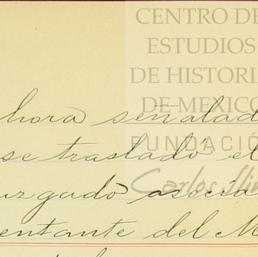 CENTRO DE
ESTUDIOS
DE HISTORIA
DE MEXICO
FUNDACIÓ
Carlos Slim
hora señalad
se trasladó el
uzgado asocia
entante del M